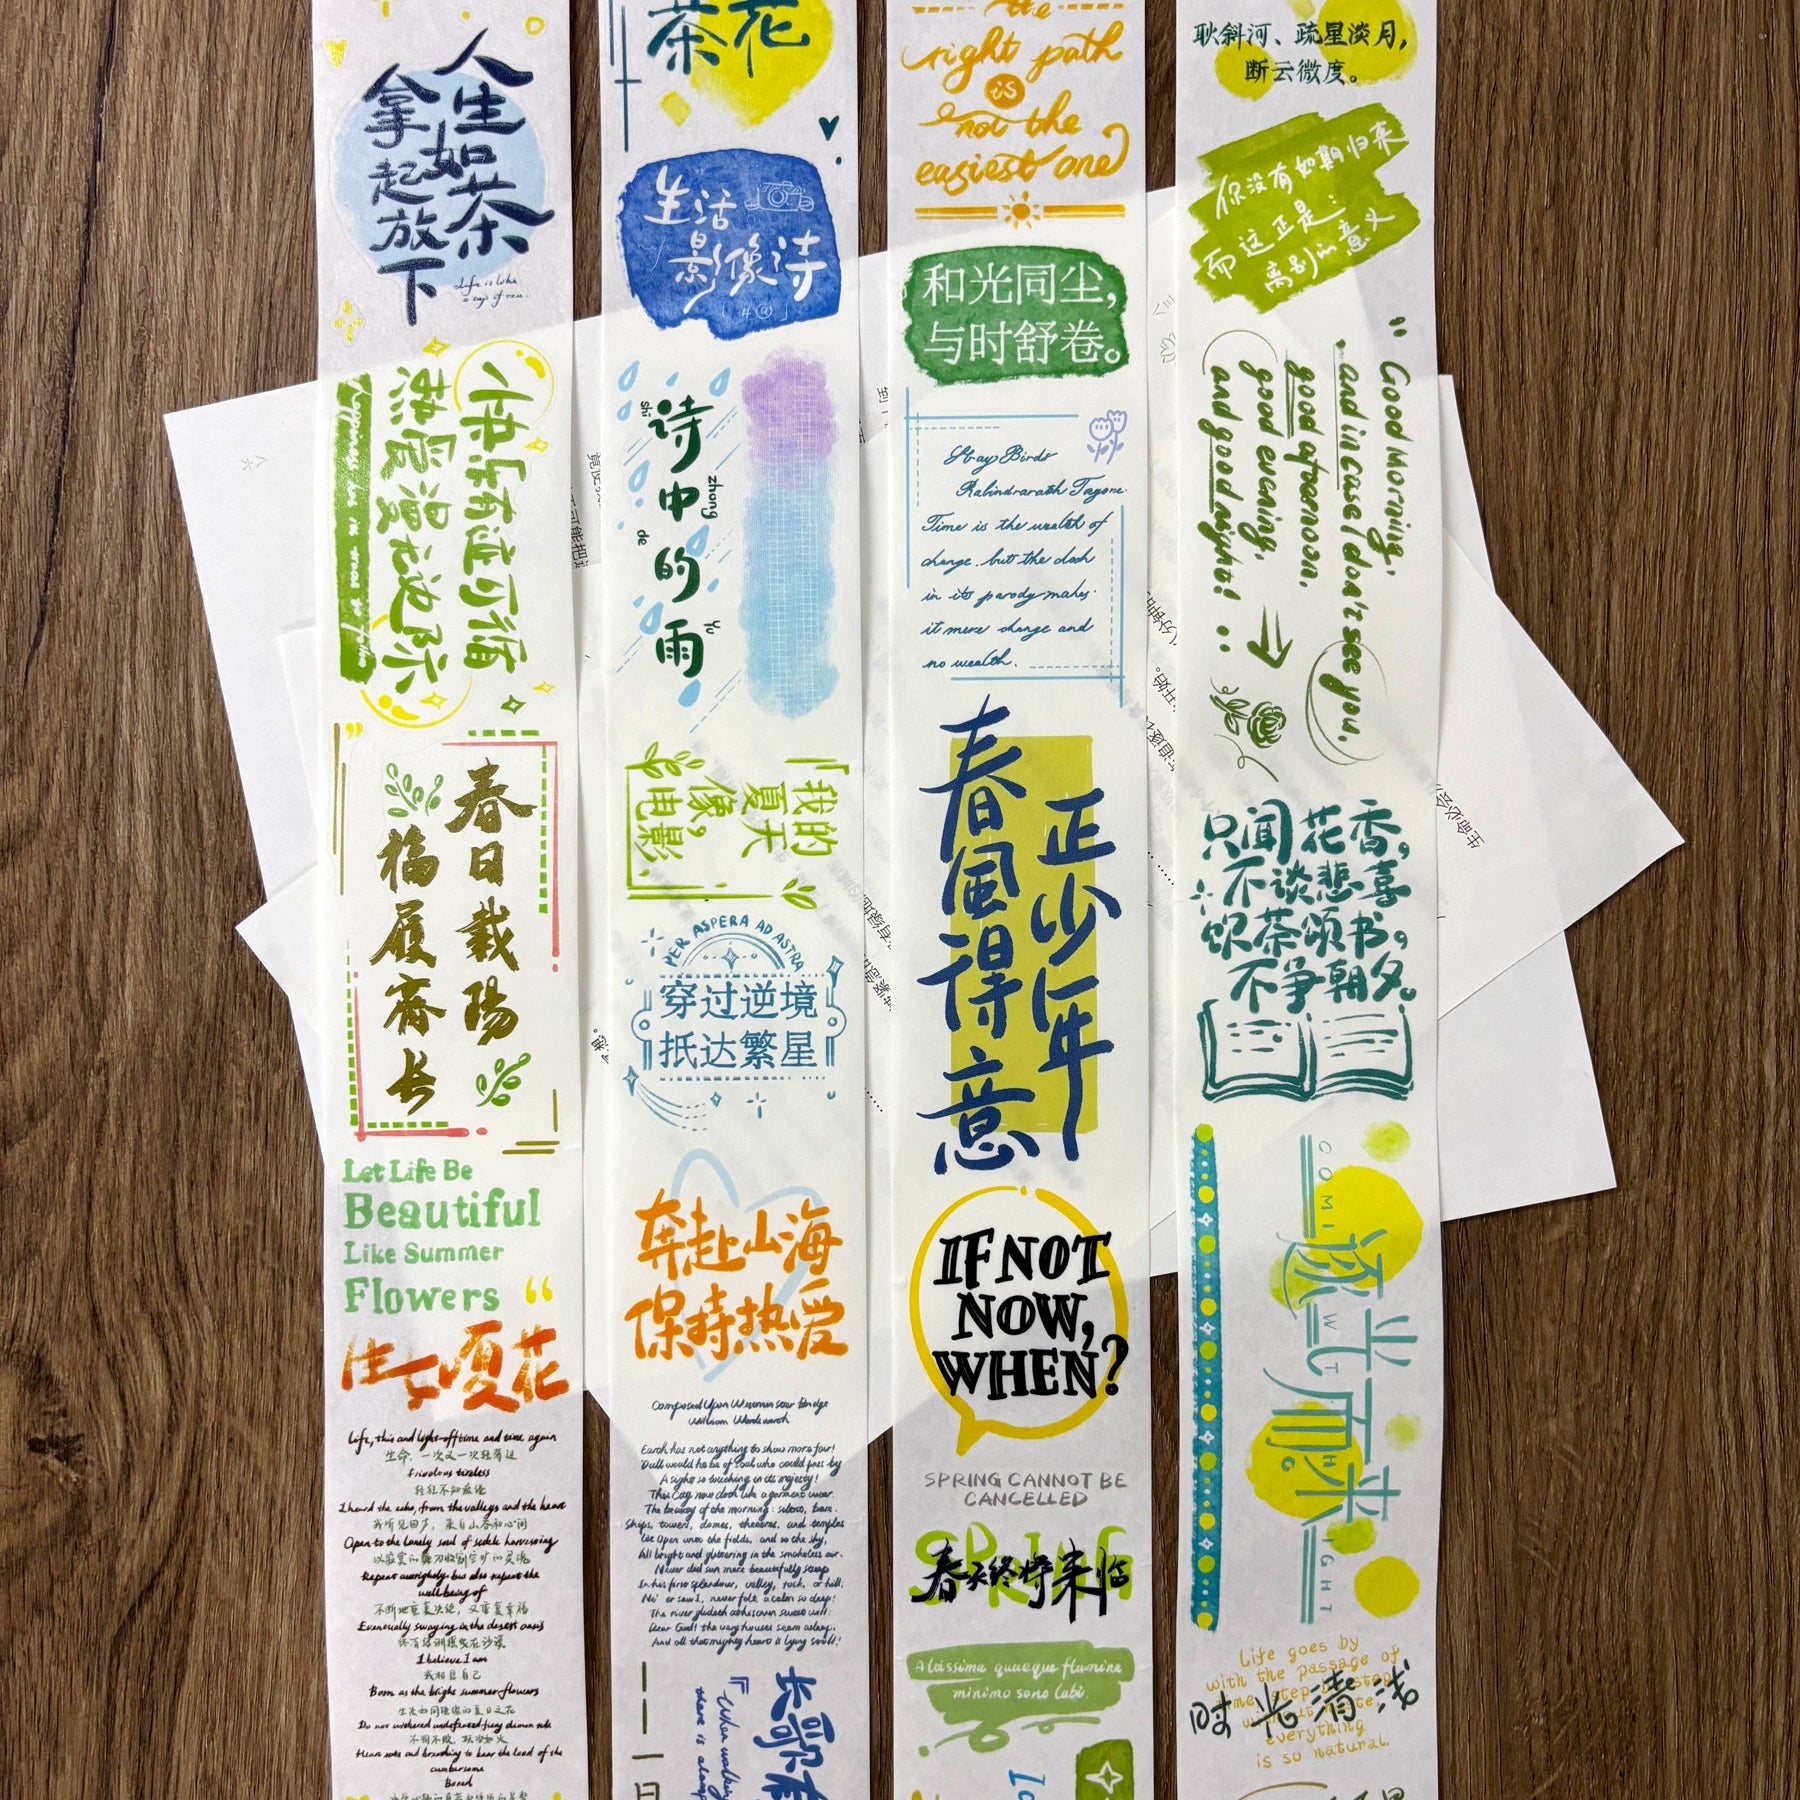 人生如茶
拿起放下
Life is like
a cup of tea.
快乐有迹可循
热爱漫无边际
春日载陽
福履齊长
Let Life Be
Beautiful
Like Summer
Flowers
生如夏花
Life, thin and light-off time and time again
生命，一次又一次轻薄过
Frivolous tireless
轻狂不知疲倦
I heard the echo, from the valleys and the heart
我听见回声，来自山谷和心间
Open to the lonely soul of sickle harvesting
以寂寞的镰刀收割空旷的灵魂
Repeat outrightly, but also repeat the
well-being of
不断地重复决绝，又重复幸福
Eventually swaying in the desert oasis
终有绿洲摇曳在沙漠
I believe I am
我相信自己
Born as the bright summer flowers
生来如同璀璨的夏日之花
Do not withered undefeated fiery demon rule
不凋不败，妖冶如火
Heart rate and breathing to bear the load of the
cumbersome
Bored
茶花
生活
影像诗
[ #@ ]
诗中的雨
shī
zhōng
de
yǔ
我的
夏天
像，
电影
PER ASPERA AD ASTRA
穿过逆境
抵达繁星
奔赴山海
保持热爱
Composed Upon Westminster Bridge
William Wordsworth
Earth has not anything to show more fair!
Dull would he be of soul who could pass by
A sight so touching in its majesty!
This City now doth like a garment wear.
The beauty of the morning: silent, bare.
Ships, towers, domes, theatres, and temples
lie Open unto the fields, and to the sky;
All bright and glittering in the smokeless air.
Never did sun more beautifully steep
In his first splendour, valley, rock, or hill;
Ne' er saw I, never felt, a calm so deep!
The river glideth at his own sweet will:
Dear God! the very houses seem asleep;
And all that mighty heart is lying still!
长歌有
『When walking
there is along
the
right path
is
not the
easiest one
和光同尘，
与时舒卷。
Stray Birds
Rabindranath Tagore.
Time is the wealth of
change. but the clock
in its parody makes
it mere change and
no wealth.
春風得意
正少年
IF NOT
NOW,
WHEN?
SPRING CANNOT BE
CANCELLED
SPRING
春天终将来临
Altissima quaeque flumina
minimo sono labi.
耿斜河、疏星淡月，
断云微度。
你没有如期归来
而这正是：
离别的意义
"Good Morning,
and in case I don't see you,
good afternoon,
good evening,
and good night!
只闻花香，
不谈悲喜
饮茶颂书，
不争朝夕。
逐光而来。
Life goes by
with the passage of
everything
is so natural.
时光清浅